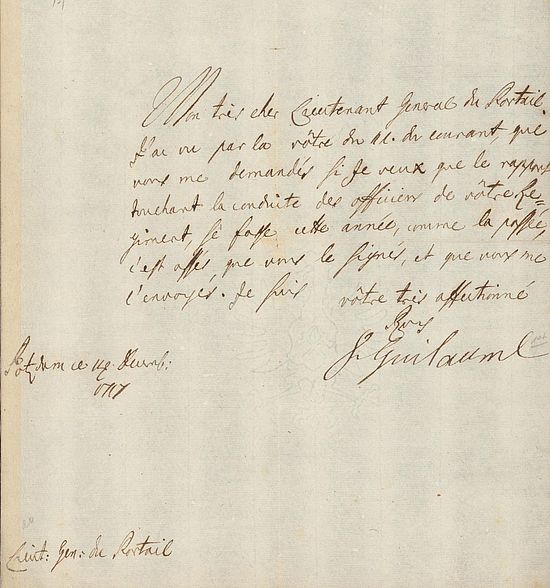 Mon tres cher Lieutenant General du Portail.
J'ai vu par la vôtre du 11. du courant, que
vous me demandés si Je veux que le rapport
touchant la conduite des officiers de vôtre Re=
giment, se fasse cette année, comme la passée,
c'est assés, que vous le signés, et que vous me
l'envoyés. Je suis vôtre tres affectionné
Roy
Fr Guillaume
Potzdam ce Decemb:
1717
Lieut: Gen: du Portail